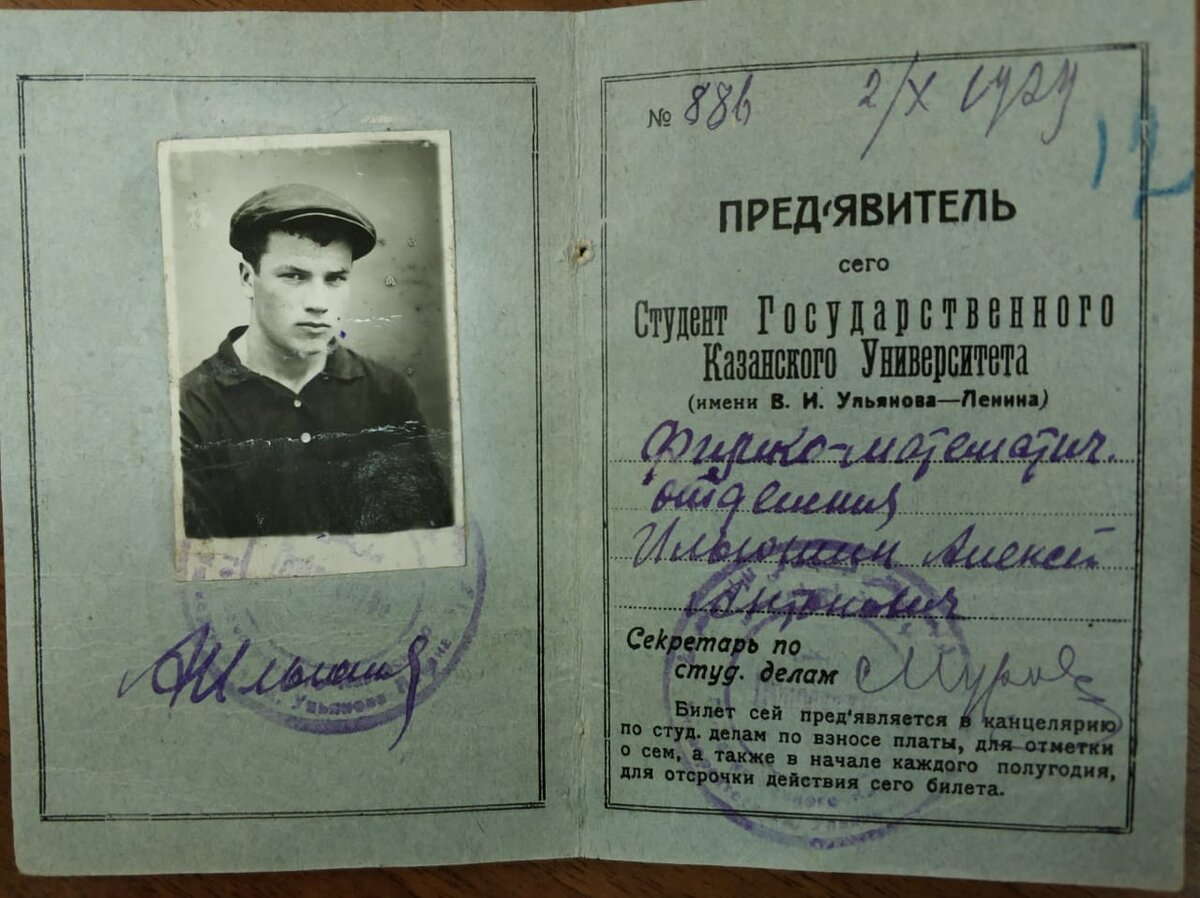 А Ильюшин
№ 886 2/X 1929
12
ПРЕД'ЯВИТЕЛЬ
сего
Студент Государственного
Казанского Университета
(имени В. И. Ульянова—Ленина)
Физико-математич.
отделения
Ильюшин Алексей
Антонович
Секретарь по
студ. делам
Билет сей пред'является в канцелярию
по студ. делам по взносе платы, для отметки
о сем, а также в начале каждого полугодия,
для отсрочки действия сего билета.